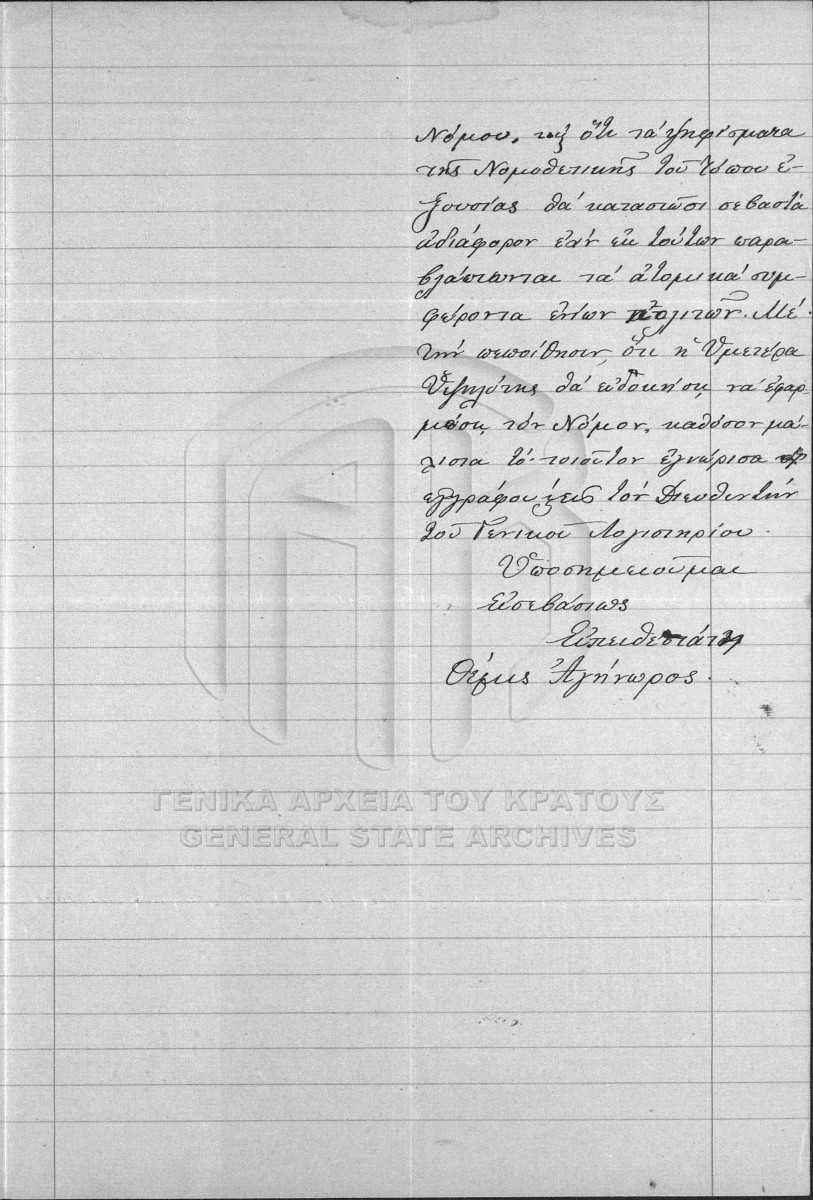 Νόμου, καὶ ὅτι τὰ ψηφίσματα
τῆς Νομοθετικῆς τοῦ τόπου ἐ-
ξουσίας θὰ καταστῶσι σεβαστὰ
ἀδιάφορον ἐὰν ἐκ τούτων παρα-
βλάπτωνται τὰ ἀτομικὰ συμ-
φέροντα ἐνίων πολιτῶν. Μὲ
τὴν πεποίθησιν, ὅτι ἡ Ὑμετέρα
Ὑψηλότης θὰ εὐδοκήσῃ νὰ ἐφαρ-
μόσῃ τὸν Νόμον, καθόσον μά-
λιστα τὸ τοιοῦτον ἐγνώρισα
ἐγγράφως εἰς τὸν Διευθυντὴν
τοῦ Γενικοῦ Λογιστηρίου.
Ὑποσημειοῦμαι
Εὐσεβάστως
Εὐπειθεστάτη
Ἀγήνωρος.
ΓΕΝΙΚΑ ΑΡΧΕΙΑ ΤΟΥ ΚΡΑΤΟΥΣ
GENERAL STATE ARCHIVES